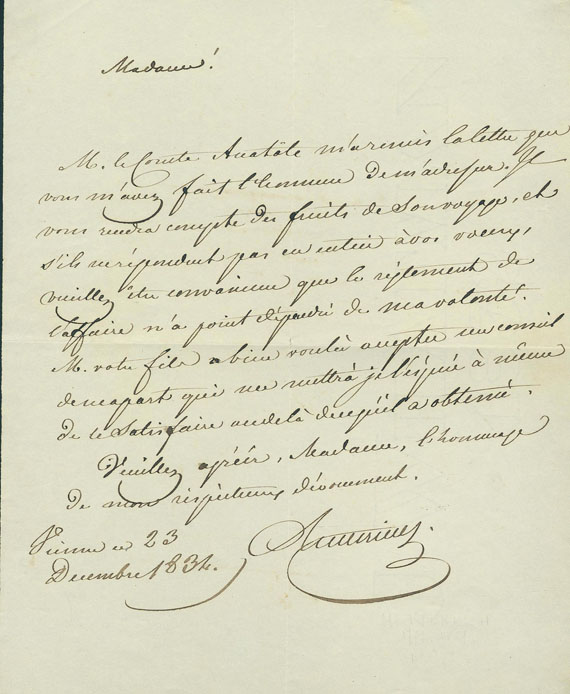 Madame!
M. le Comte Anatole m'a remis la lettre que
vous m'avez fait l'honneur de m'adresser. Il
vous rendra compte des fruits de son voyage, et
s'ils ne répondent pas en entier à vos voeux,
veuillez être convaincue que le règlement de
l'affaire n'a point dépendu de ma volonté.
M. votre fils a bien voulu accepter un conseil
de ma part qui me mettra je l'éspère à même
de le satisfaire au delà de ce qu'il a obtenu.
Veuillez agréér, Madame, l'hommage
de mon respectueux dévouement.
Vienne ce 23
Decembre 1834.